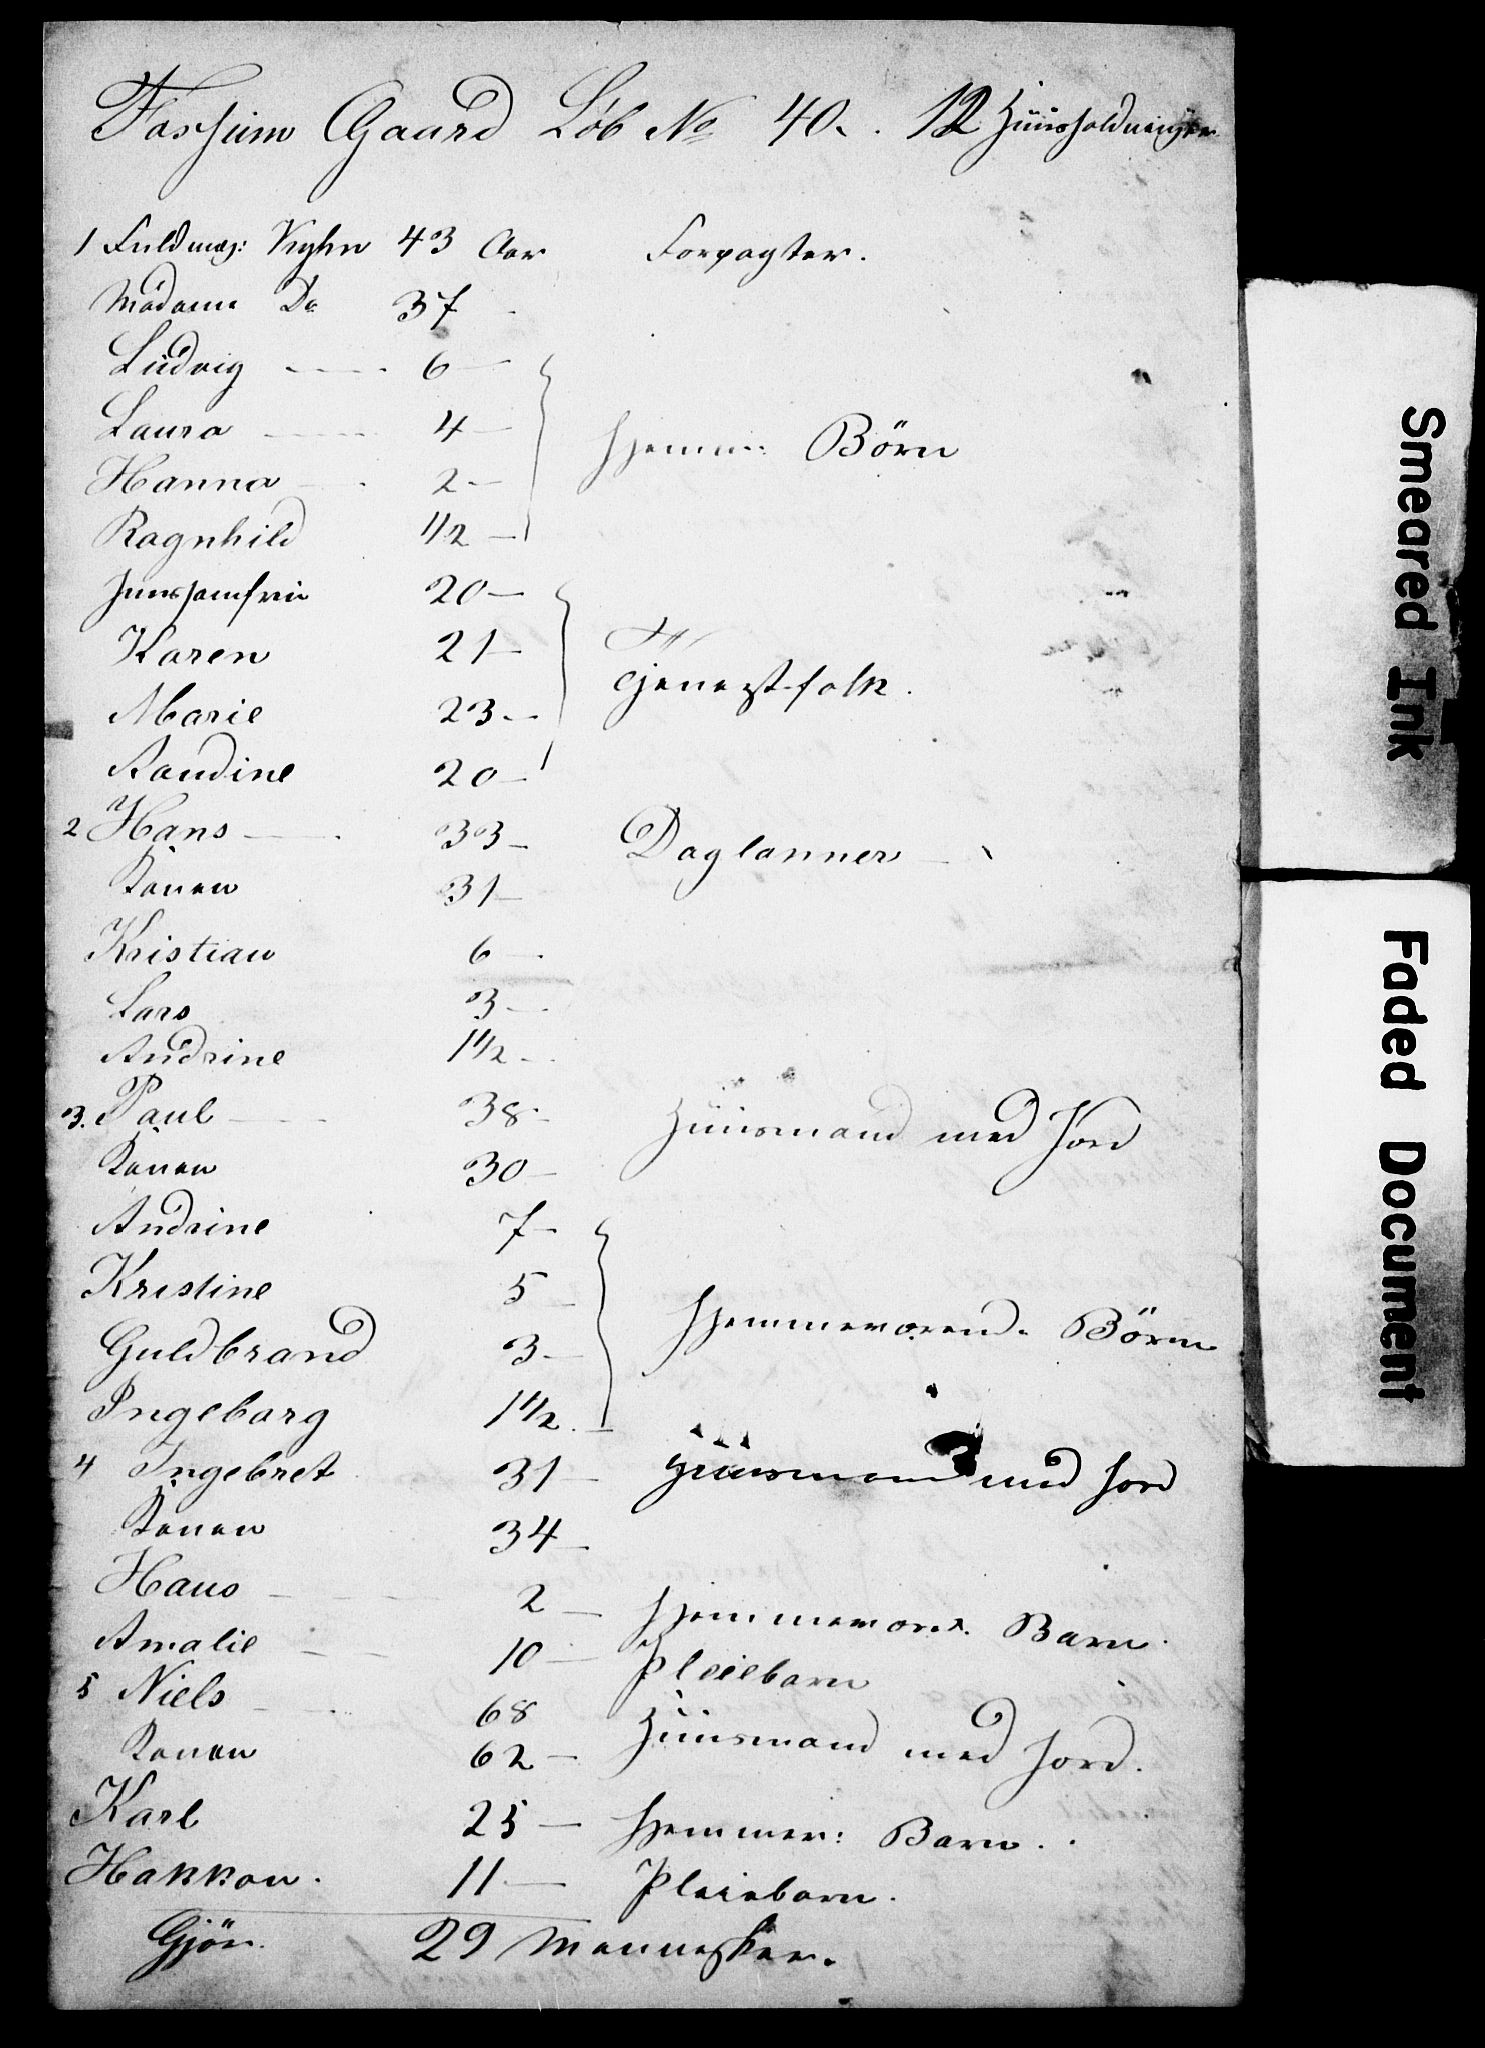 Fossum Gaard Løb No 40. 12 Huusholdninger
1 Fuldmæg: Kyhn 43 Aar Forpagter.
Madame Do 37
Ludvig 6
Laura 4
Hanna 2 Hjemm: Börn
Ragnhild 1/2
Huusjomfru 20
Karen 21 Tjenestfolk.
Marie 23
Randine 20
2 Hans 33 Daglønner
Konen 31
Kristian 6
Lars 3
Andrine 1 1/2
3. Paul 38 Huusmand med Jord
Konen 30
Andrine 7
Kristine 5 Hjemmeværend. Börn
Guldbrand 3
Ingeborg 1 1/2
4 Ingebret 31 Huusmand med Jord
Konen 34
Hans 2 Hjemmeværd. Barn.
Amalie 10 Pleiebarn
5 Niels 68 Huusmand med Jord.
Konen 62
Karl 25 Hjemmev: Barn.
Hakkon. 11 Pleiebarn.
Gjör. 29 Mennesker.
Smeared Ink
Faded Document